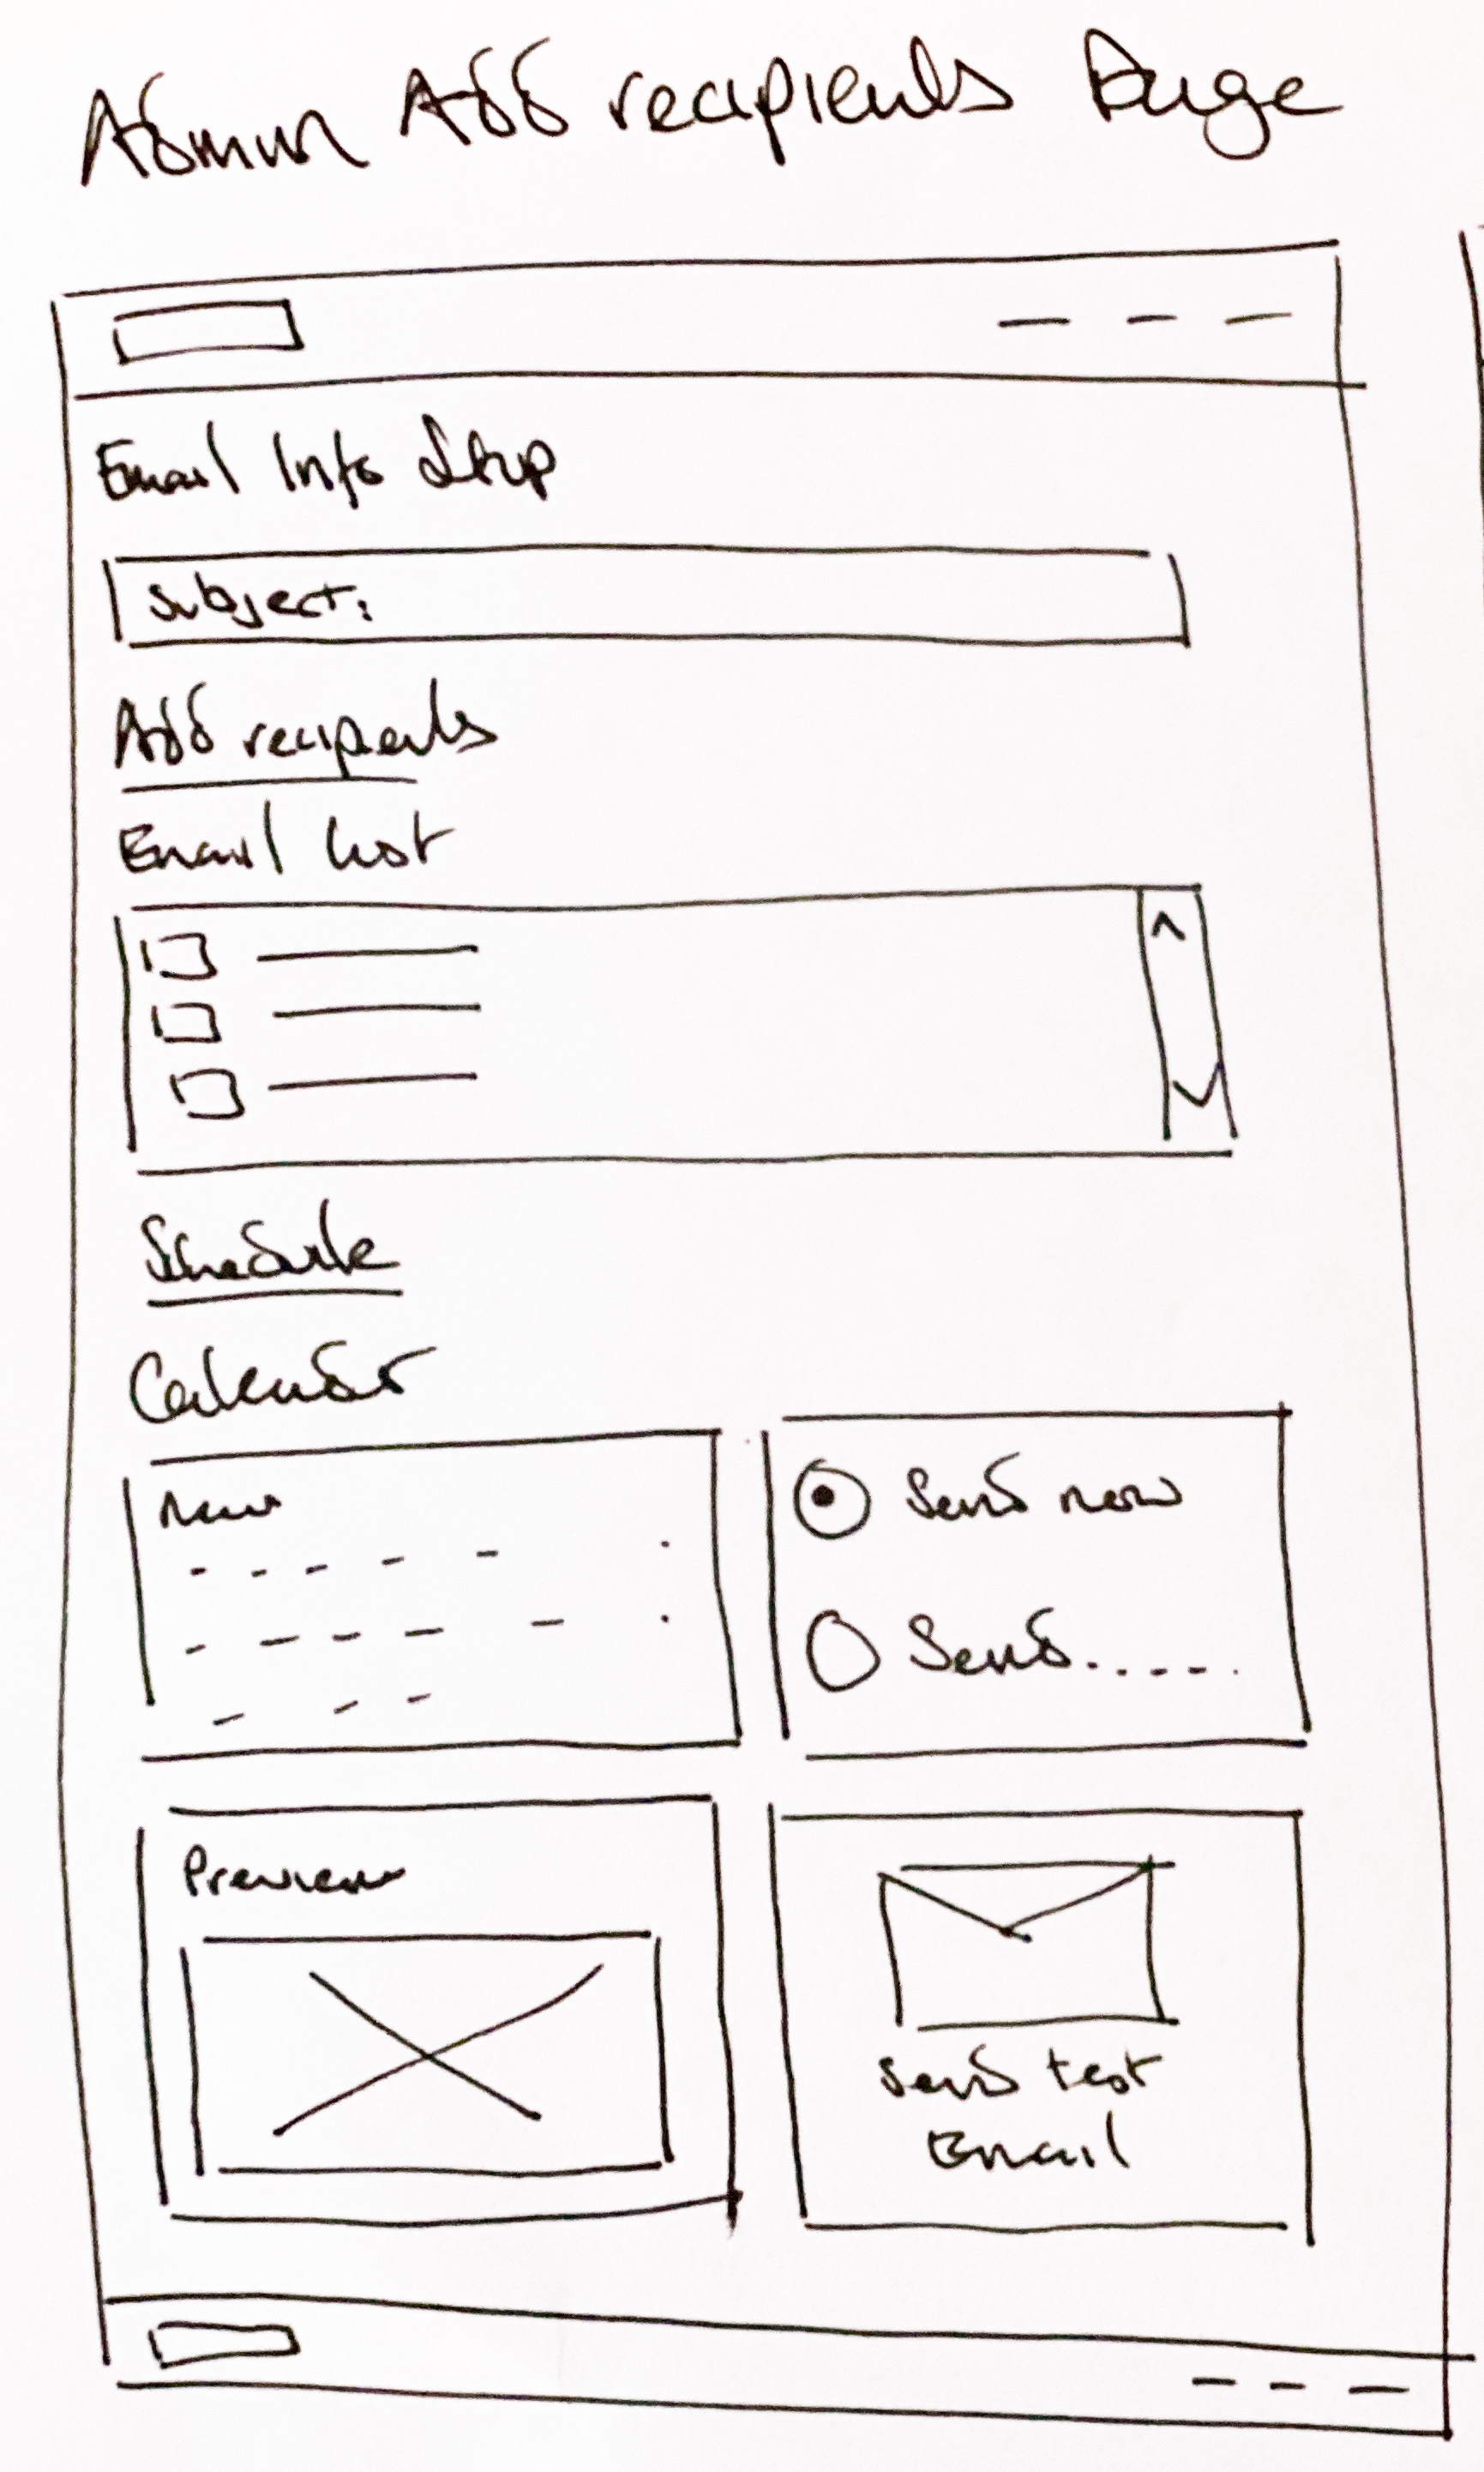 Admin Add recipients Page
Email Info Step
Subject:
Add recipients
Email list
Schedule
Calendar
Send now
Send......
Preview
Send test
Email